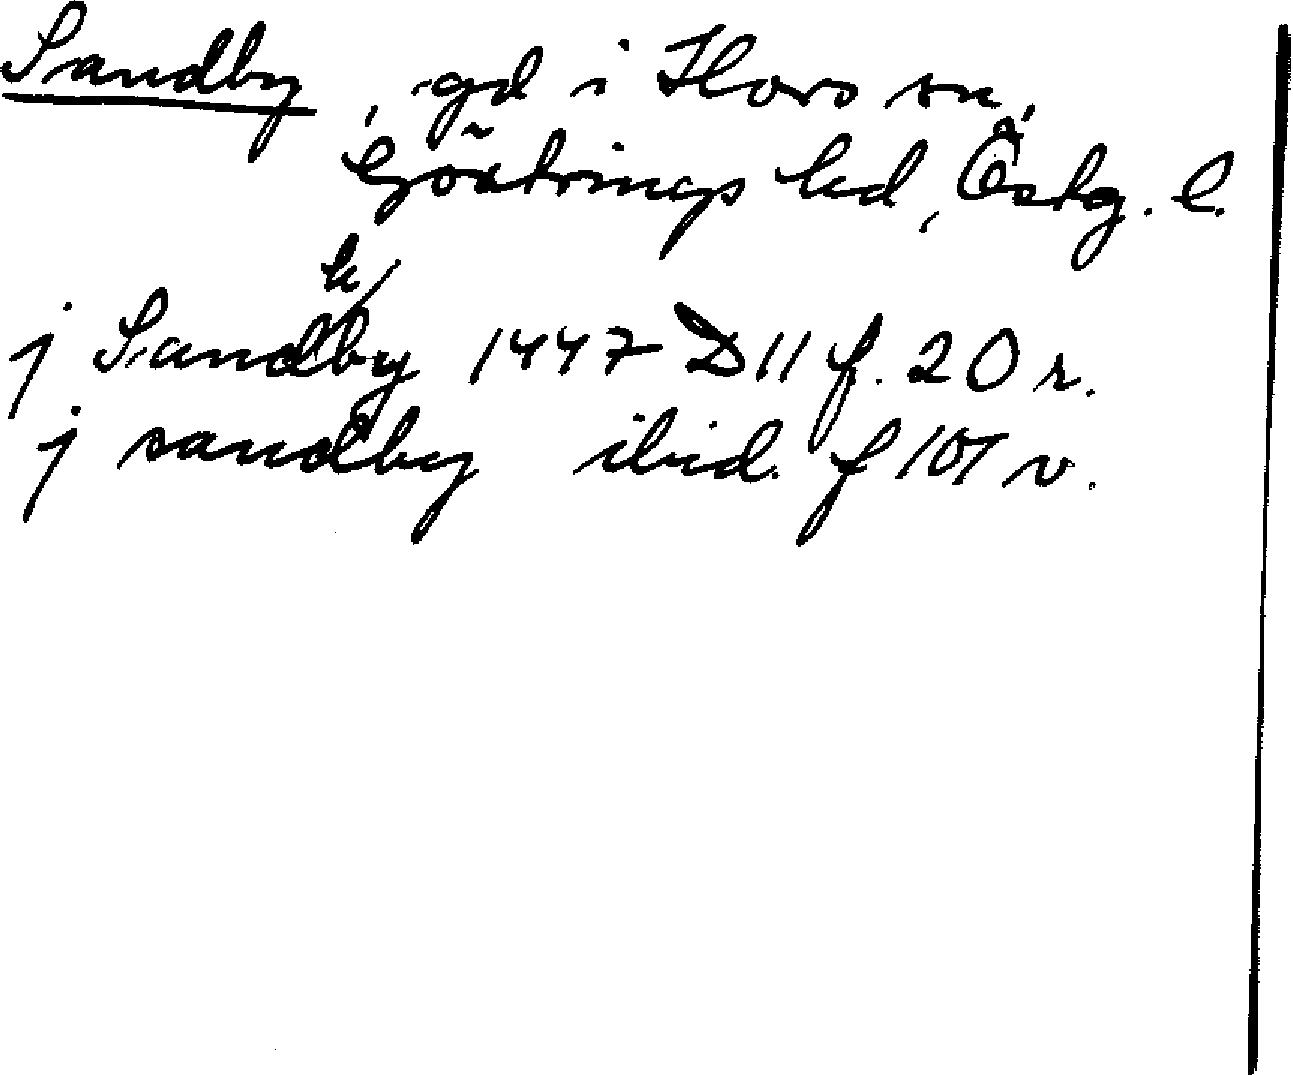 Sandby, gd i Hovs sn,
Göstrings hd, Östg. l.
j Sandby 1447 D 11 f. 20 r.
j sandby ibid. f 107 v.